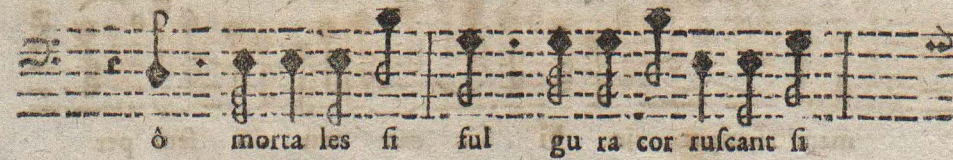 ô morta les ſi ful gu ra cor ruſcant ſi